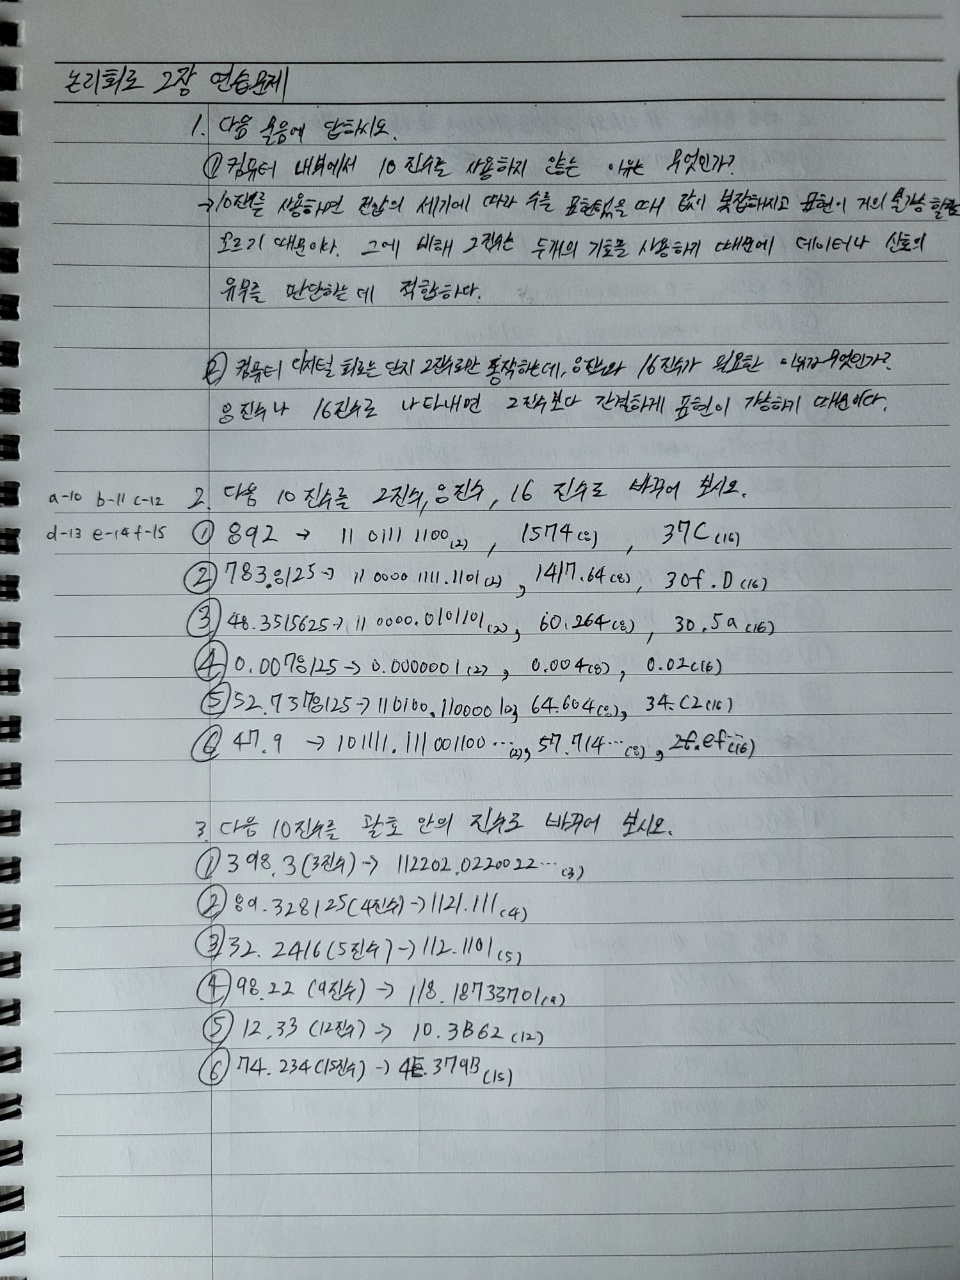 논리회로 2장 연습문제
1. 다음 물음에 답하시오.
① 컴퓨터 내부에서 10진수를 사용하지 않는 이유는 무엇인가?
→ 10진수를 사용하면 전압의 세기에 따라 수를 표현했을 때 값이 복잡해지고 표현이 거의 불가능할지도
모르기 때문이다. 그에 비해 2진수는 두개의 기호를 사용하기 때문에 데이터나 신호의
유무를 판단하는 데 적합하다.
② 컴퓨터 디지털 회로는 단지 2진수로만 동작하는데, 8진수와 16진수가 필요한 이유가 무엇인가?
8진수나 16진수로 나타내면 2진수보다 간결하게 표현이 가능하기 때문이다.
a-10 b-11 c-12 2. 다음 10진수를 2진수, 8진수, 16진수로 바꾸어 보시오.
d-13 e-14 f-15 ① 892 → 11 0111 1100(2), 1574(8), 37C(16)
② 783.8125 → 11 0000 1111.1101(2), 1417.64(8), 30f.D(16)
③ 48.3515625 → 11 0000.0101101(2), 60.264(8), 30.5a(16)
④ 0.0078125 → 0.0000001(2), 0.004(8), 0.02(16)
⑤ 52.7578125 → 110100.1100001(2), 64.604(8), 34.C2(16)
⑥ 47.9 → 101111.111001100…(2), 57.714…(8), 2f.ef…(16)
3. 다음 10진수를 괄호 안의 진수로 바꾸어 보시오.
① 398.3(3진수) → 112202.0220022…(3)
② 89.328125(4진수) → 1121.111(4)
③ 32.2416(5진수) → 112.1101(5)
④ 98.22 (9진수) → 118.18733701(9)
⑤ 12.33 (12진수) → 10.3B62(12)
⑥ 74.234(15진수) → 4E.379B(15)